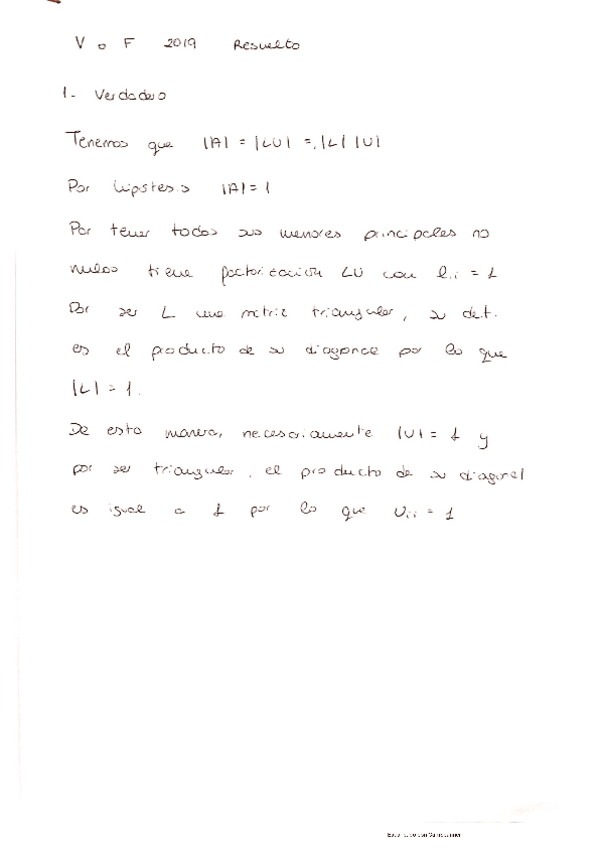 V o F 2019 Resuelto
1- Verdadero
Tenemos que |A| = |LU| = |L| |U|
Por hipótesis |A| = 1
Por tener todos sus menores principales no
nulos tiene factorización LU con lii = 1
Por ser L una matriz triangular, su det.
es el producto de su diagonal por lo que
|L| = 1.
De esta manera, necesariamente |U| = 1 y
por ser triangular, el producto de su diagonal
es igual a 1 por lo que Uii = 1